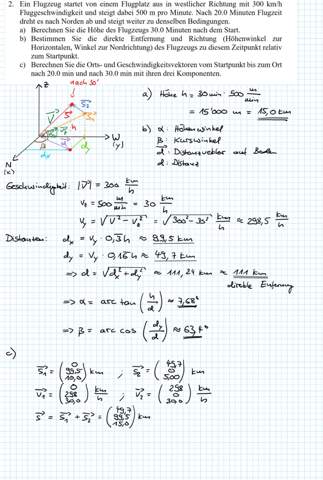 2. Ein Flugzeug startet von einem Flugplatz aus in westlicher Richtung mit 300 km/h
Fluggeschwindigkeit und steigt dabei 500 m pro Minute. Nach 20.0 Minuten Flugzeit
dreht es nach Norden ab und steigt weiter zu denselben Bedingungen.
a) Berechnen Sie die Höhe des Flugzeugs 30.0 Minuten nach dem Start.
b) Bestimmen Sie die direkte Entfernung und Richtung (Höhenwinkel zur
Horizontalen, Winkel zur Nordrichtung) des Flugzeugs zu diesem Zeitpunkt relativ
zum Startpunkt.
c) Berechnen Sie die Orts- und Geschwindigkeitsvektoren vom Startpunkt bis zum Ort
nach 20.0 min und nach 30.0 min mit ihren drei Komponenten.
nach 30'
z
a) Höhe h = 30 min · 500 m/min
= 15'000 m = 15,0 km
W
(y)
N
(x)
dx
d
b) α: Höhenwinkel
β: Kurswinkel
d: Distanzvektor auf Boden
d: Distanz
Geschwindigkeit: |V| = 300 km/h
Vz = 500 m/min = 30 km/h
Vy = √(V² - Vz²) = √(300² - 30²) km/h ≈ 298,5 km/h
Distanzen: dx = Vy · 0,3 h ≈ 99,5 km
dy = Vy · 0,16 h ≈ 49,7 km
⇒ d = √(dx² + dy²) ≈ 111,24 km ≈ 111 km
direkte Entfernung
⇒ α = arc tan (h/d) ≈ 7,68°
⇒ β = arc cos (dy/d) ≈ 63,4°
c)
S1 = (0 99,5 10,0) km ; S2 = (49,7 0 5,00) km
V1 = (0 298 30,0) km/h ; V2 = (298 0 30,0) km/h
S = S1 + S2 = (49,7 99,5 15,0) km